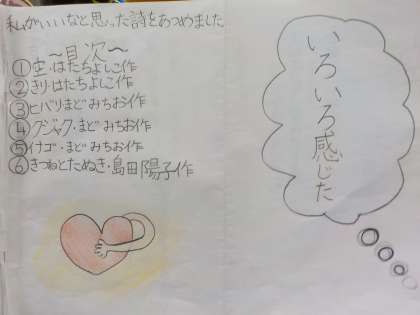 私がいいなと思った詩をあつめました
〜目次〜
①空・はたちよしこ作
②きり・はたちよしこ作
③ヒバリまどみちお作
④クジャク・まどみちお作
⑤イナゴ・まどみちお作
⑥きつねとたぬき・島田陽子作
いろいろ感じた